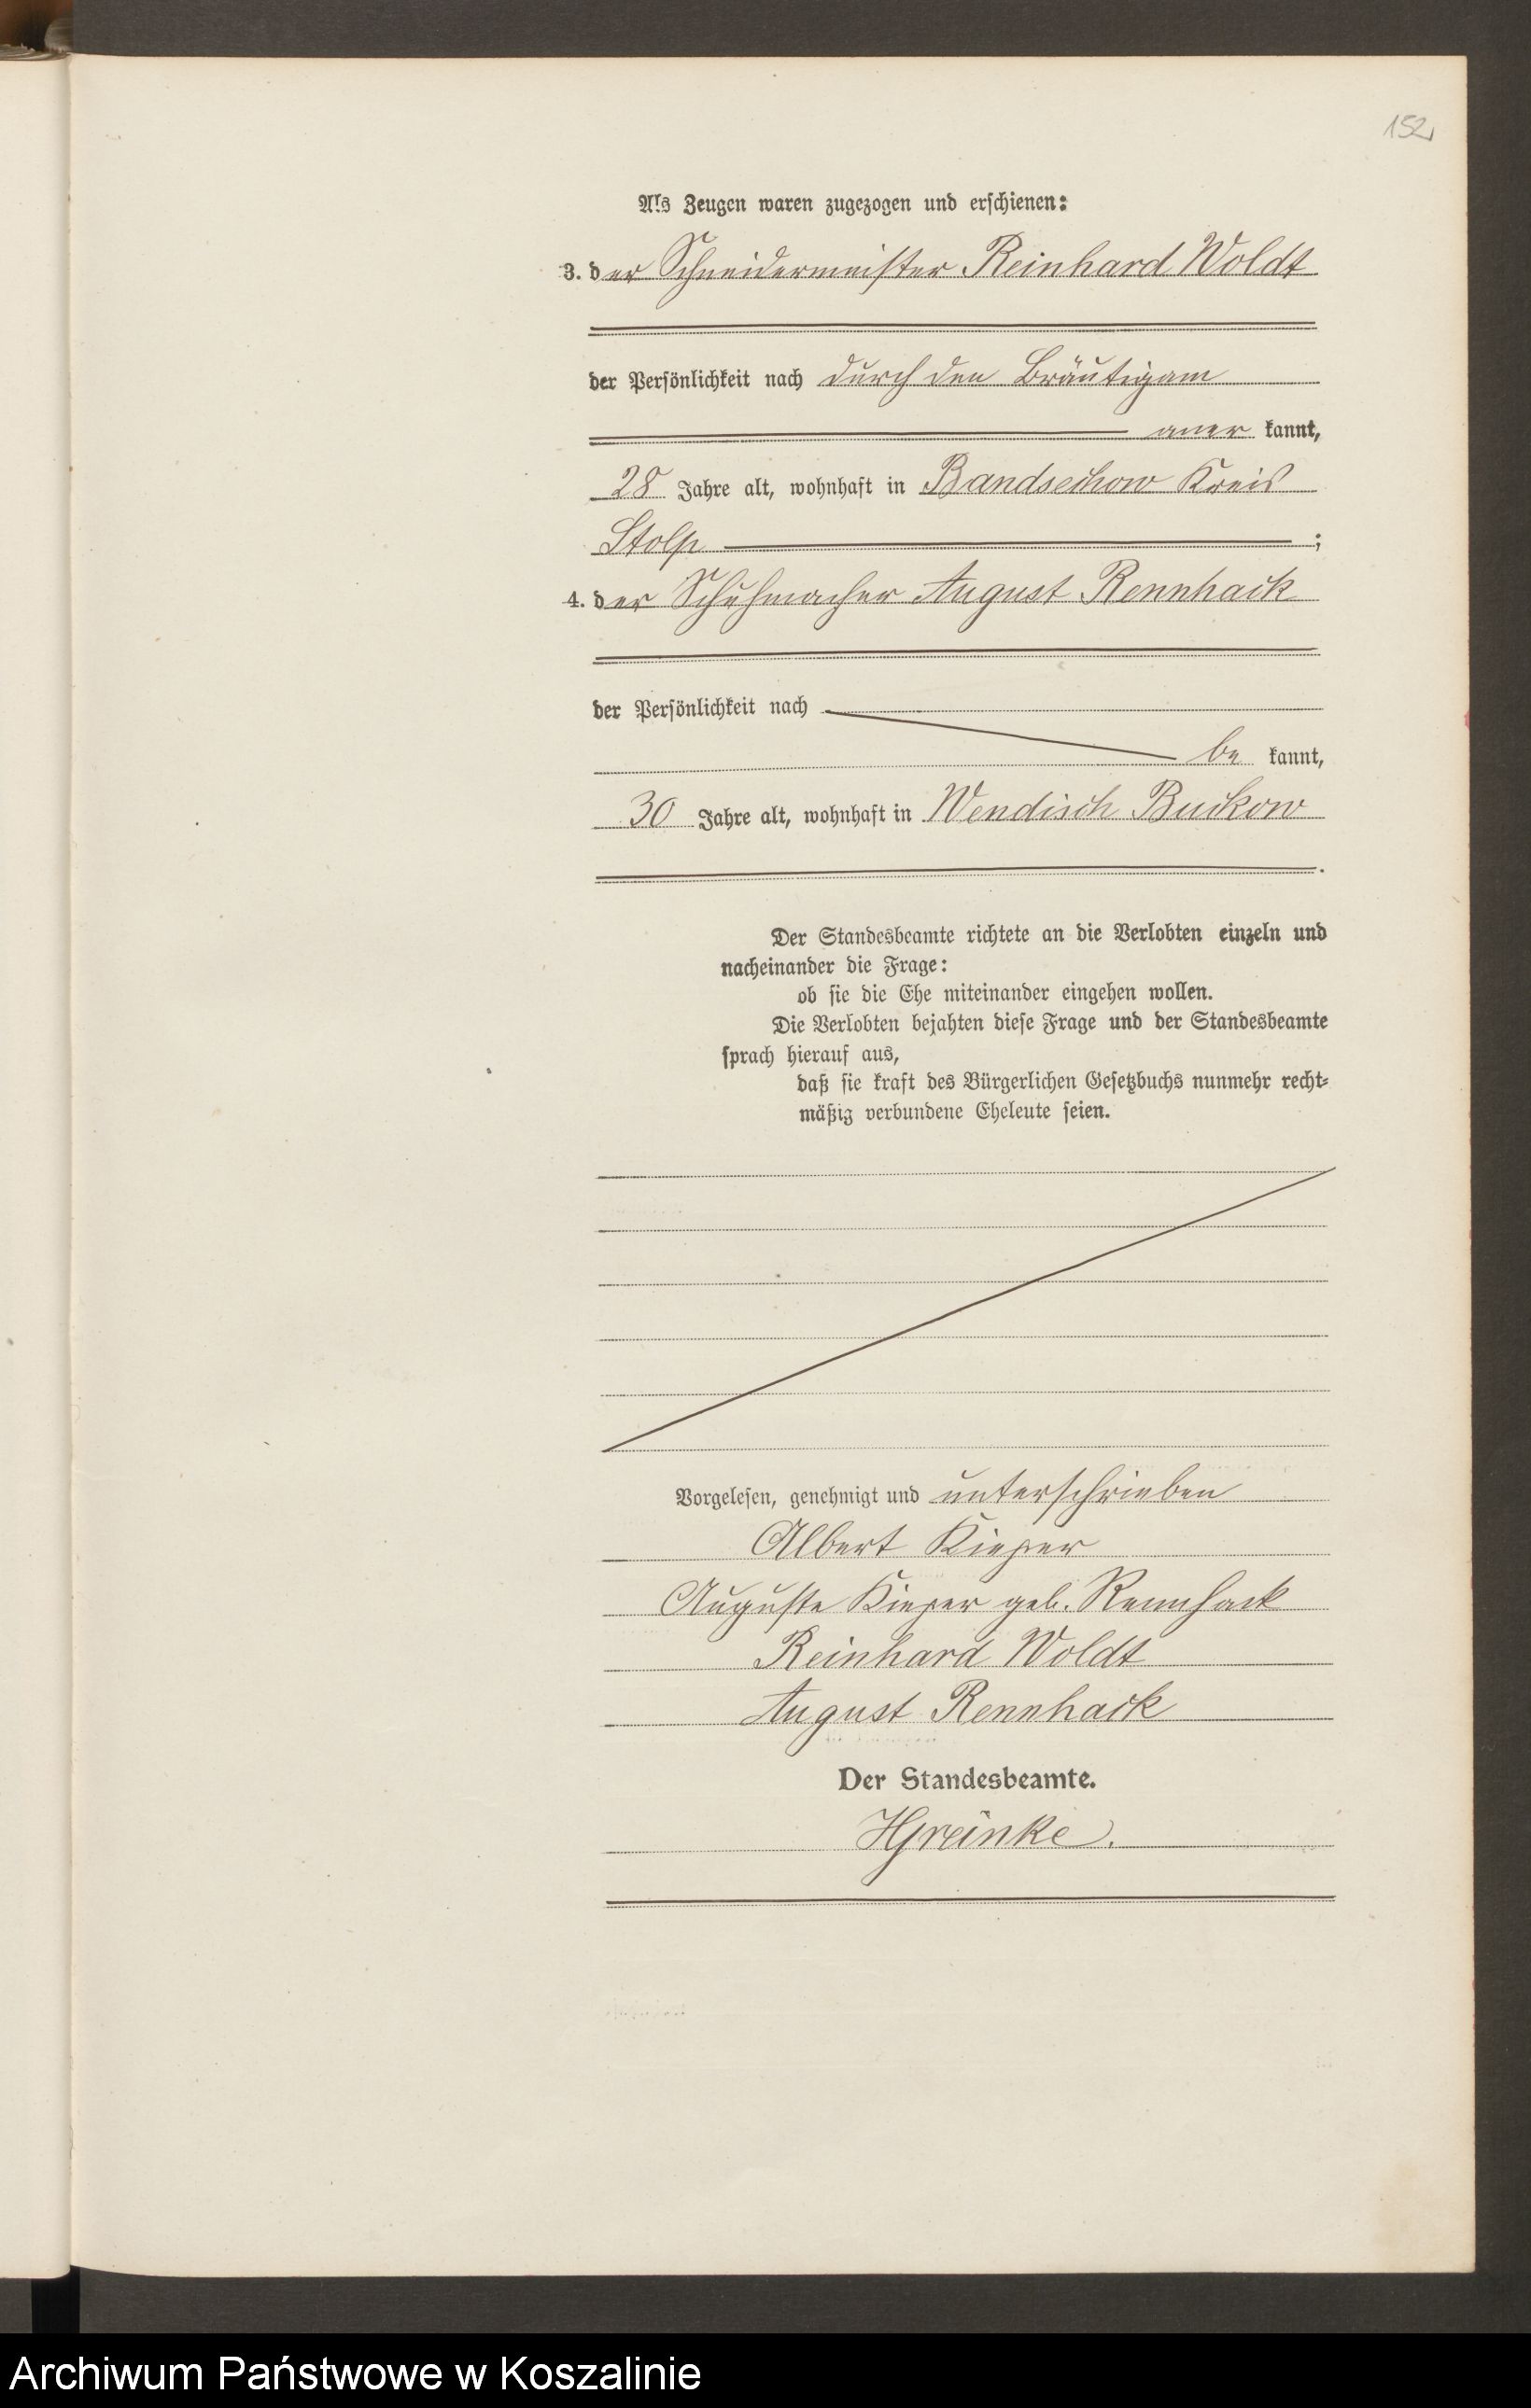 152
Als Zeugen waren zugezogen und erschienen:
3. der Schneidermeister Reinhard Woldt
der Persönlichkeit nach durch den Bräutigam
aner kannt,
28 Jahre alt, wohnhaft in Bandsechow Kreis
Stolp ;
4. der Schuhmacher August Rennhack
der Persönlichkeit nach
be kannt,
30 Jahre alt, wohnhaft in Wendisch Buckow
.
Der Standesbeamte richtete an die Verlobten einzeln und
nacheinander die Frage:
ob sie die Ehe miteinander eingehen wollen.
Die Verlobten bejahten diese Frage und der Standesbeamte
sprach hierauf aus,
daß sie kraft des Bürgerlichen Gesetzbuchs nunmehr recht-
mäßig verbundene Eheleute seien.
Vorgelesen, genehmigt und unterschrieben
Albert Kieper
Auguste Kieper geb. Rennhack
Reinhard Woldt
August Rennhack
Der Standesbeamte.
HGreinke.
Archiwum Państwowe w Koszalinie